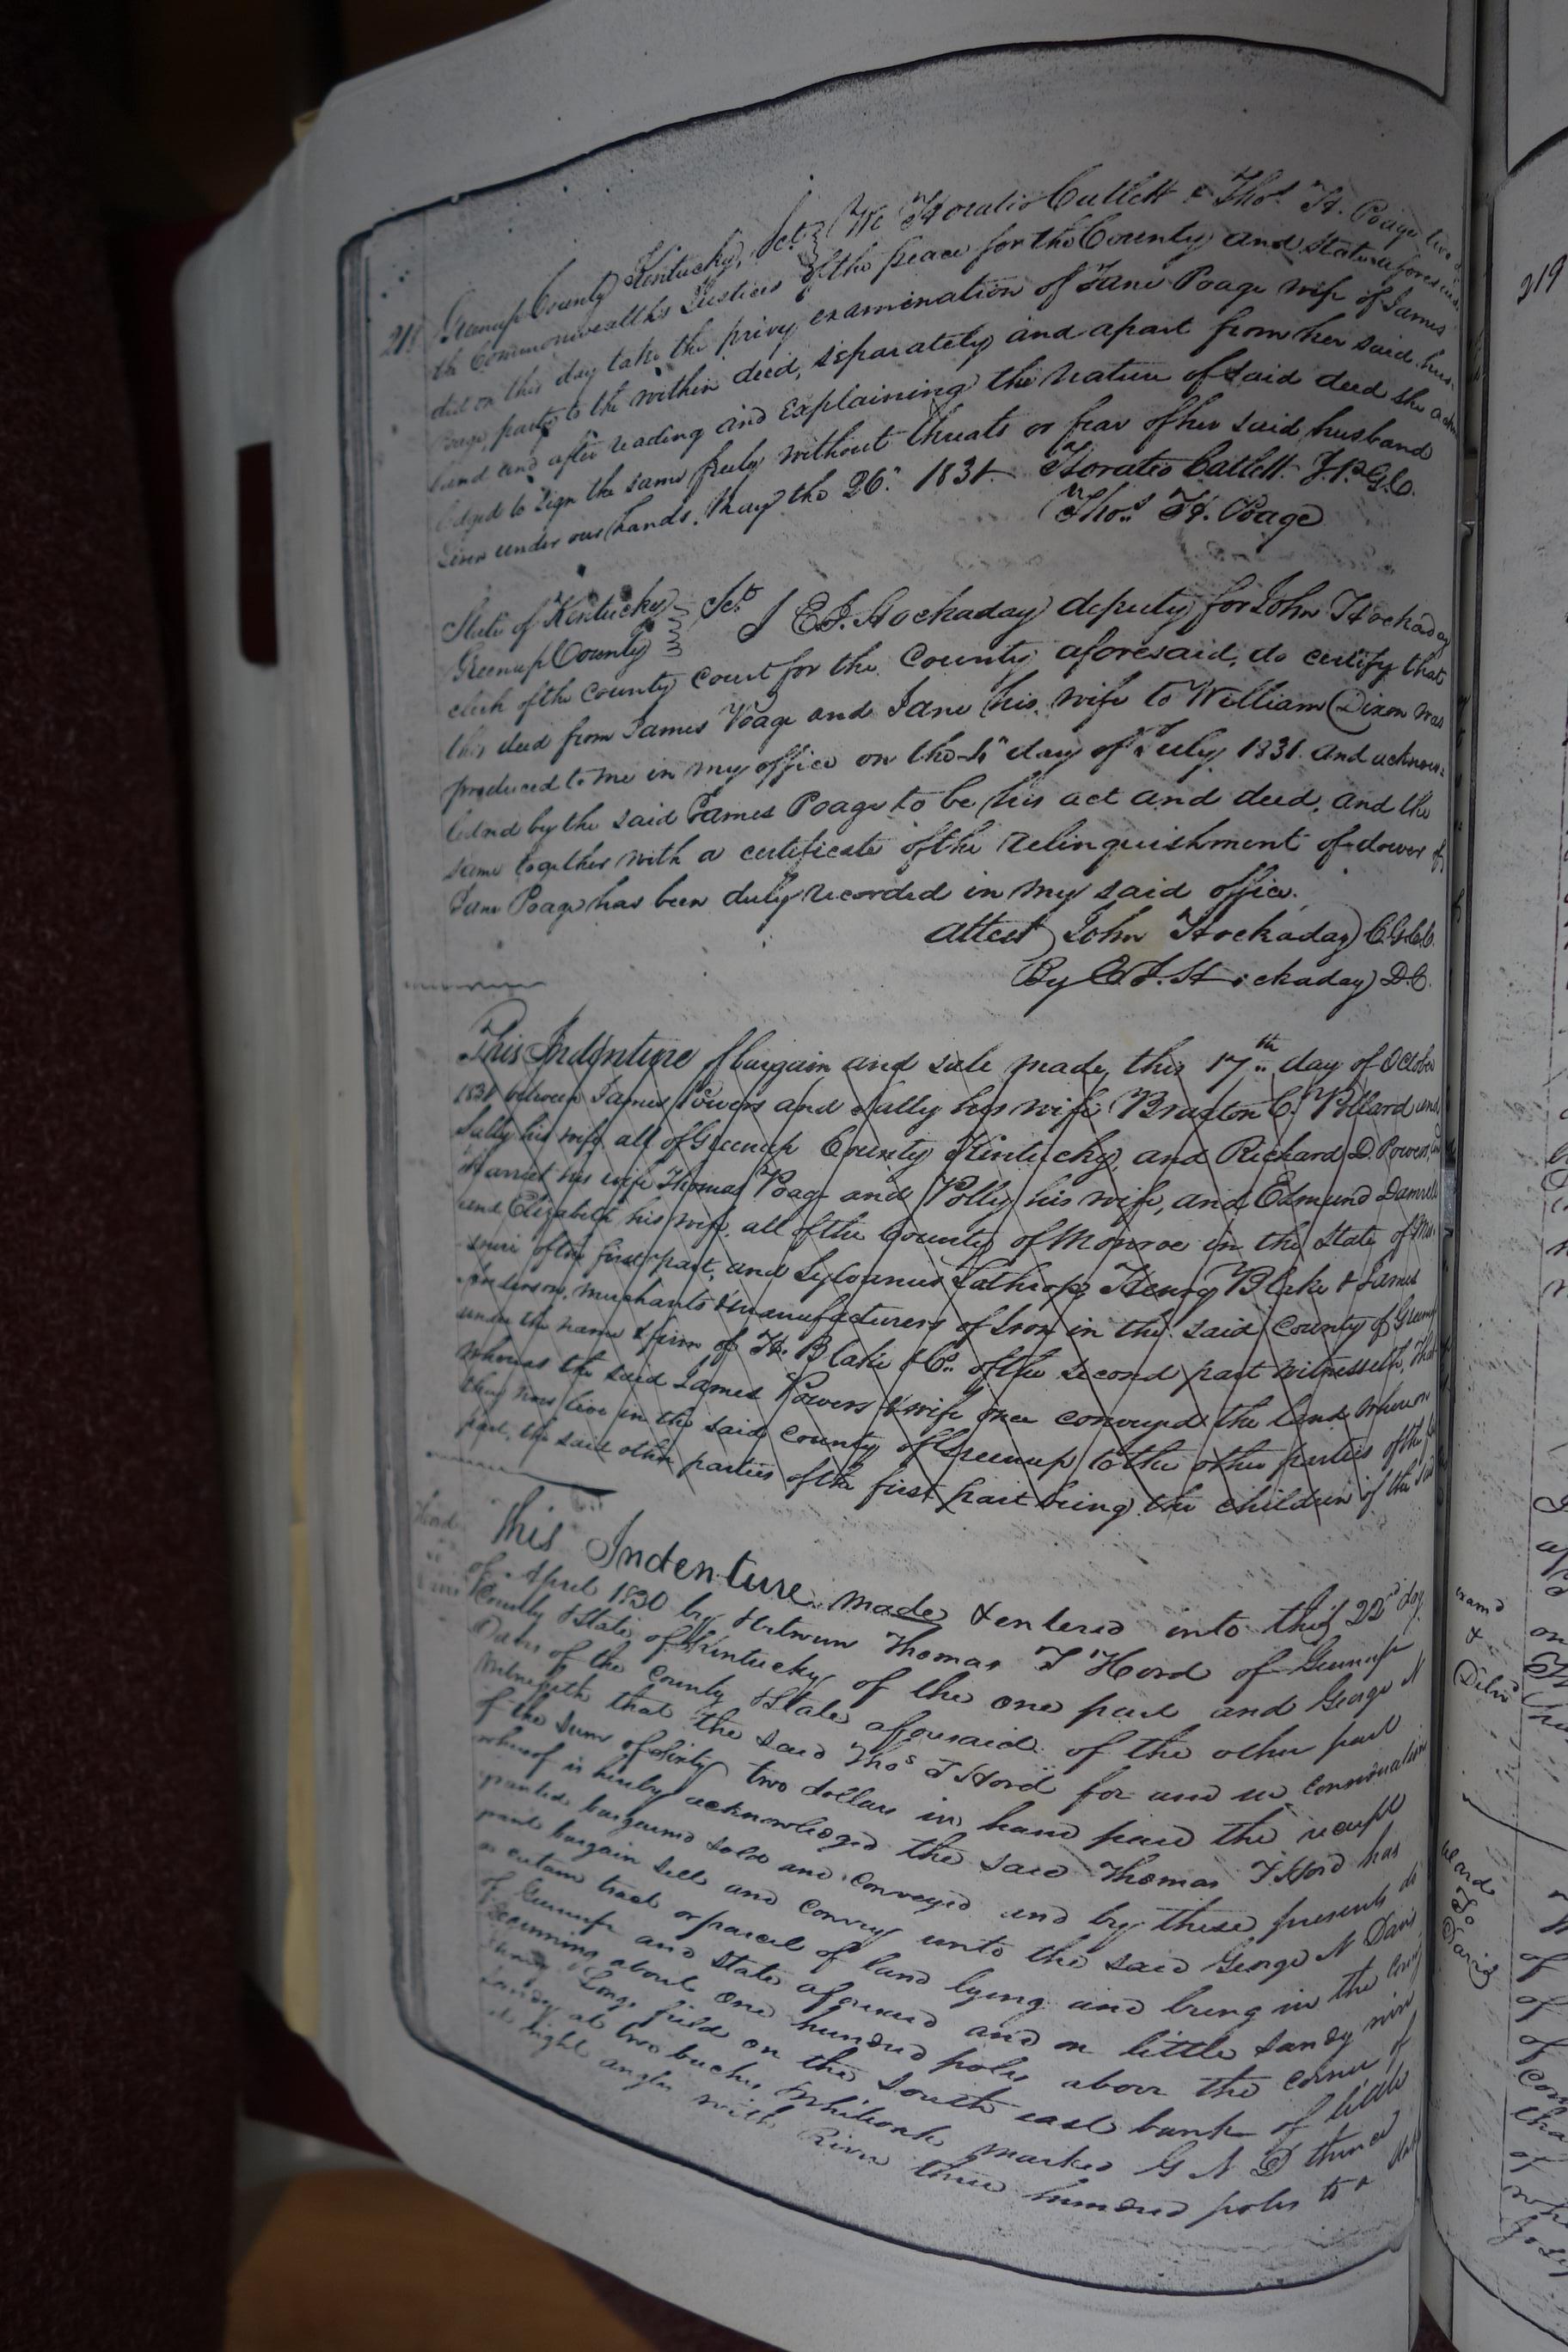 218
Greenup County Kentucky, Sct. We Horatio Catlett & Thos. H. Poage two of
the Commonwealths Justices of the peace for the County and State aforesaid
did on this day take the privy examination of Jane Poage wife of James
Poage, party to the within deed, separately and apart from her said hus-
band and after reading and explaining the nature of said deed she acknow
ledged to sign the same freely without threats or fear of her said husband
Given under our hands. May the 26th 1831. Horatio Catlett J.P.G.C.
Thos. H. Poage
State of Kentucky Sct.
Greenup County
I E.J. Hockaday deputy for John Hockaday
clerk of the county court for the County aforesaid, do certify that
this deed from James Poage and Jane his wife to William Dixon was
produced to me in my office on the 4th day of July 1831. and acknow-
ledged by the said James Poage to be his act and deed, and the
same together with a certificate of the relinquishment of dower of
Jane Poage has been duly recorded in my said office.
attest John Hockaday C.G.C.C.
By E.J. Hockaday D.C.
This Indenture of bargain and sale made this 17th day of October
1831 between James Powers and Sally his wife Braxton C. Pollard and
Sally his wife all of Greenup County Kentucky, and Richard D. Powers, and
Harriet his wife Thomas Poage and Polly his wife, and Edmund Damrell
and Elizabeth his wife, all of the County of Monroe in the State of Mis-
souri of the first part, and Sylvanus Lathrop, Henry Blake & James
Anderson, merchants & manufacturers of Iron in the said County of Greenup
under the name & firm of H. Blake & Co. of the second part witnesseth, that
whereas the said James Powers & wife once conveyed the land whereon
they now live in the said county of Greenup to the other parties of the first
part, the said other parties of the first part being the children of the said
Hord
to
Davis
This Indenture made & entered into this 22d day
of April 1830 by & between Thomas T Hord of Greenup
County & State of Kentucky of the one part and George N
Davis of the County & State aforesaid of the other part
Witnesseth that the said Thos T Hord for and in consideration
of the sum of sixty two dollars in hand paid the receipt
whereof is hereby acknowledged the said Thomas T Hord has
granted bargained sold and conveyed and by these presents do
grant bargain sell and convey unto the said George N Davis
a certain tract or parcel of land lying and being in the County
of Greenup and State aforesaid and on little Sandy river
Beginning about one hundred poles above the corner of
Long field on the South east bank of little
Sandy at two buches Whiteoak marked G N D thence
at right angles with River three hundred poles to a
219
exam'd
&
Deliv'd
Ward
To
Davis